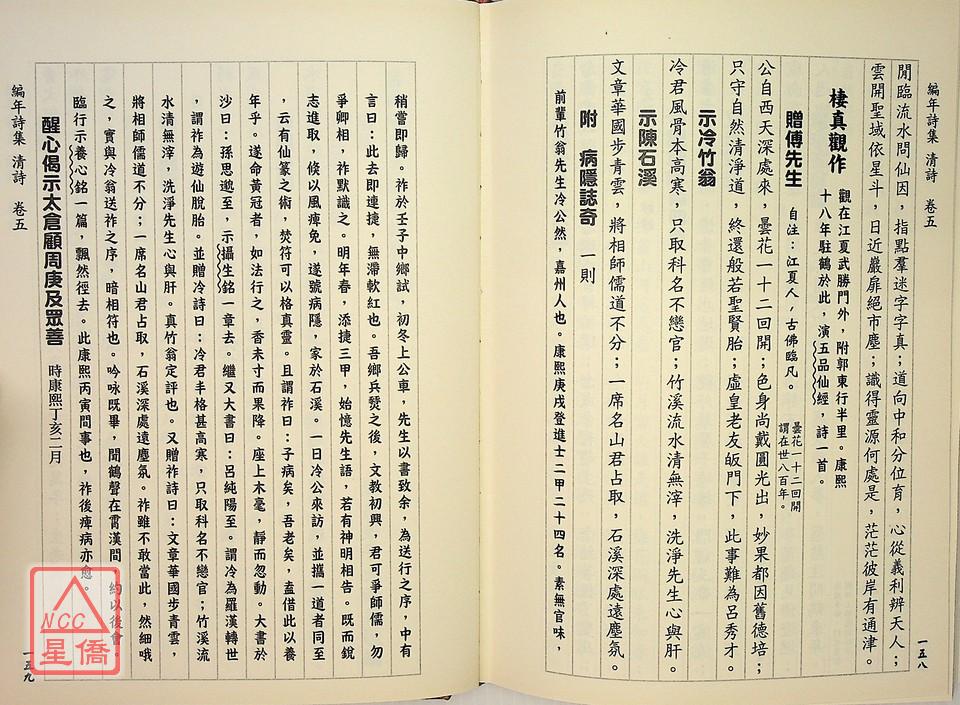 編年詩集 清詩 卷五
一五八
閒臨流水問仙因，指點羣迷字字真；道向中和分位育，心從義利辨天人；
雲開聖域依星斗，日近巖扉絕市塵；識得靈源何處是，茫茫彼岸有通津。
棲真觀作 觀在江夏武勝門外，附郭東行半里。康熙
十八年駐鶴於此，演五品仙經，詩一首。
贈傅先生 自注：江夏人，古佛臨凡。
曇花一十二回開
謂在世八百年。
公自西天深處來，曇花一十二回開；色身尚戴圓光出，妙果都因舊德培；
只守自然清淨道，終還般若聖賢胎；虛皇老友皈門下，此事難為呂秀才。
示冷竹翁
冷君風骨本高寒，只取科名不戀官；竹溪流水清無滓，洗淨先生心與肝。
示陳石溪
文章華國步青雲，將相師儒道不分；一席名山君占取，石溪深處遠塵氛。
附 病隱誌奇 一則
前輩竹翁先生冷公然，嘉州人也。康熙庚戌登進士二甲二十四名。素無官味，
稍當即歸。祚於壬子中鄉試，初冬上公車，先生以書致余，為送行之序，中有
言曰：此去即連捷，無滯軟紅也。吾鄉兵燹之後，文教初興，君可爭師儒，勿
爭卿相，祚默識之。明年春，添捷三甲，始憶先生語，若有神明相告。既而銳
志進取，倏以風痺免，遂號病隱，家於石溪。一日冷公來訪，並攜一道者同至
，云有仙篆之術，焚符可以格真靈。且謂祚曰：子病矣，吾老矣，盍借此以養
年乎。遂命黃冠者，如法行之，香未寸而果降。座上木毫，靜而忽動。大書於
沙曰：孫思邈至，示攝生銘一章去。繼又大書曰：呂純陽至。謂冷為羅漢轉世
，謂祚為遊仙脫胎。並贈冷詩曰：冷君丰格甚高寒，只取科名不戀官；竹溪流
水清無滓，洗淨先生心與肝。真竹翁定評也。又贈祚詩曰：文章華國步青雲，
將相師儒道不分；一席名山君占取，石溪深處遠塵氛。祚雖不敢當此，然細哦
之，實與冷翁送祚之序，暗相符也。吟咏既畢，聞鶴聲在霄漢間，約以後會。
臨行示養心銘一篇，飄然徑去。此康熙丙寅間事也，祚後痺病亦愈。
醒心偈示太倉顧周庚及眾善 時康熙丁亥二月
編年詩集 清詩 卷五
一五九
NCC
星僑